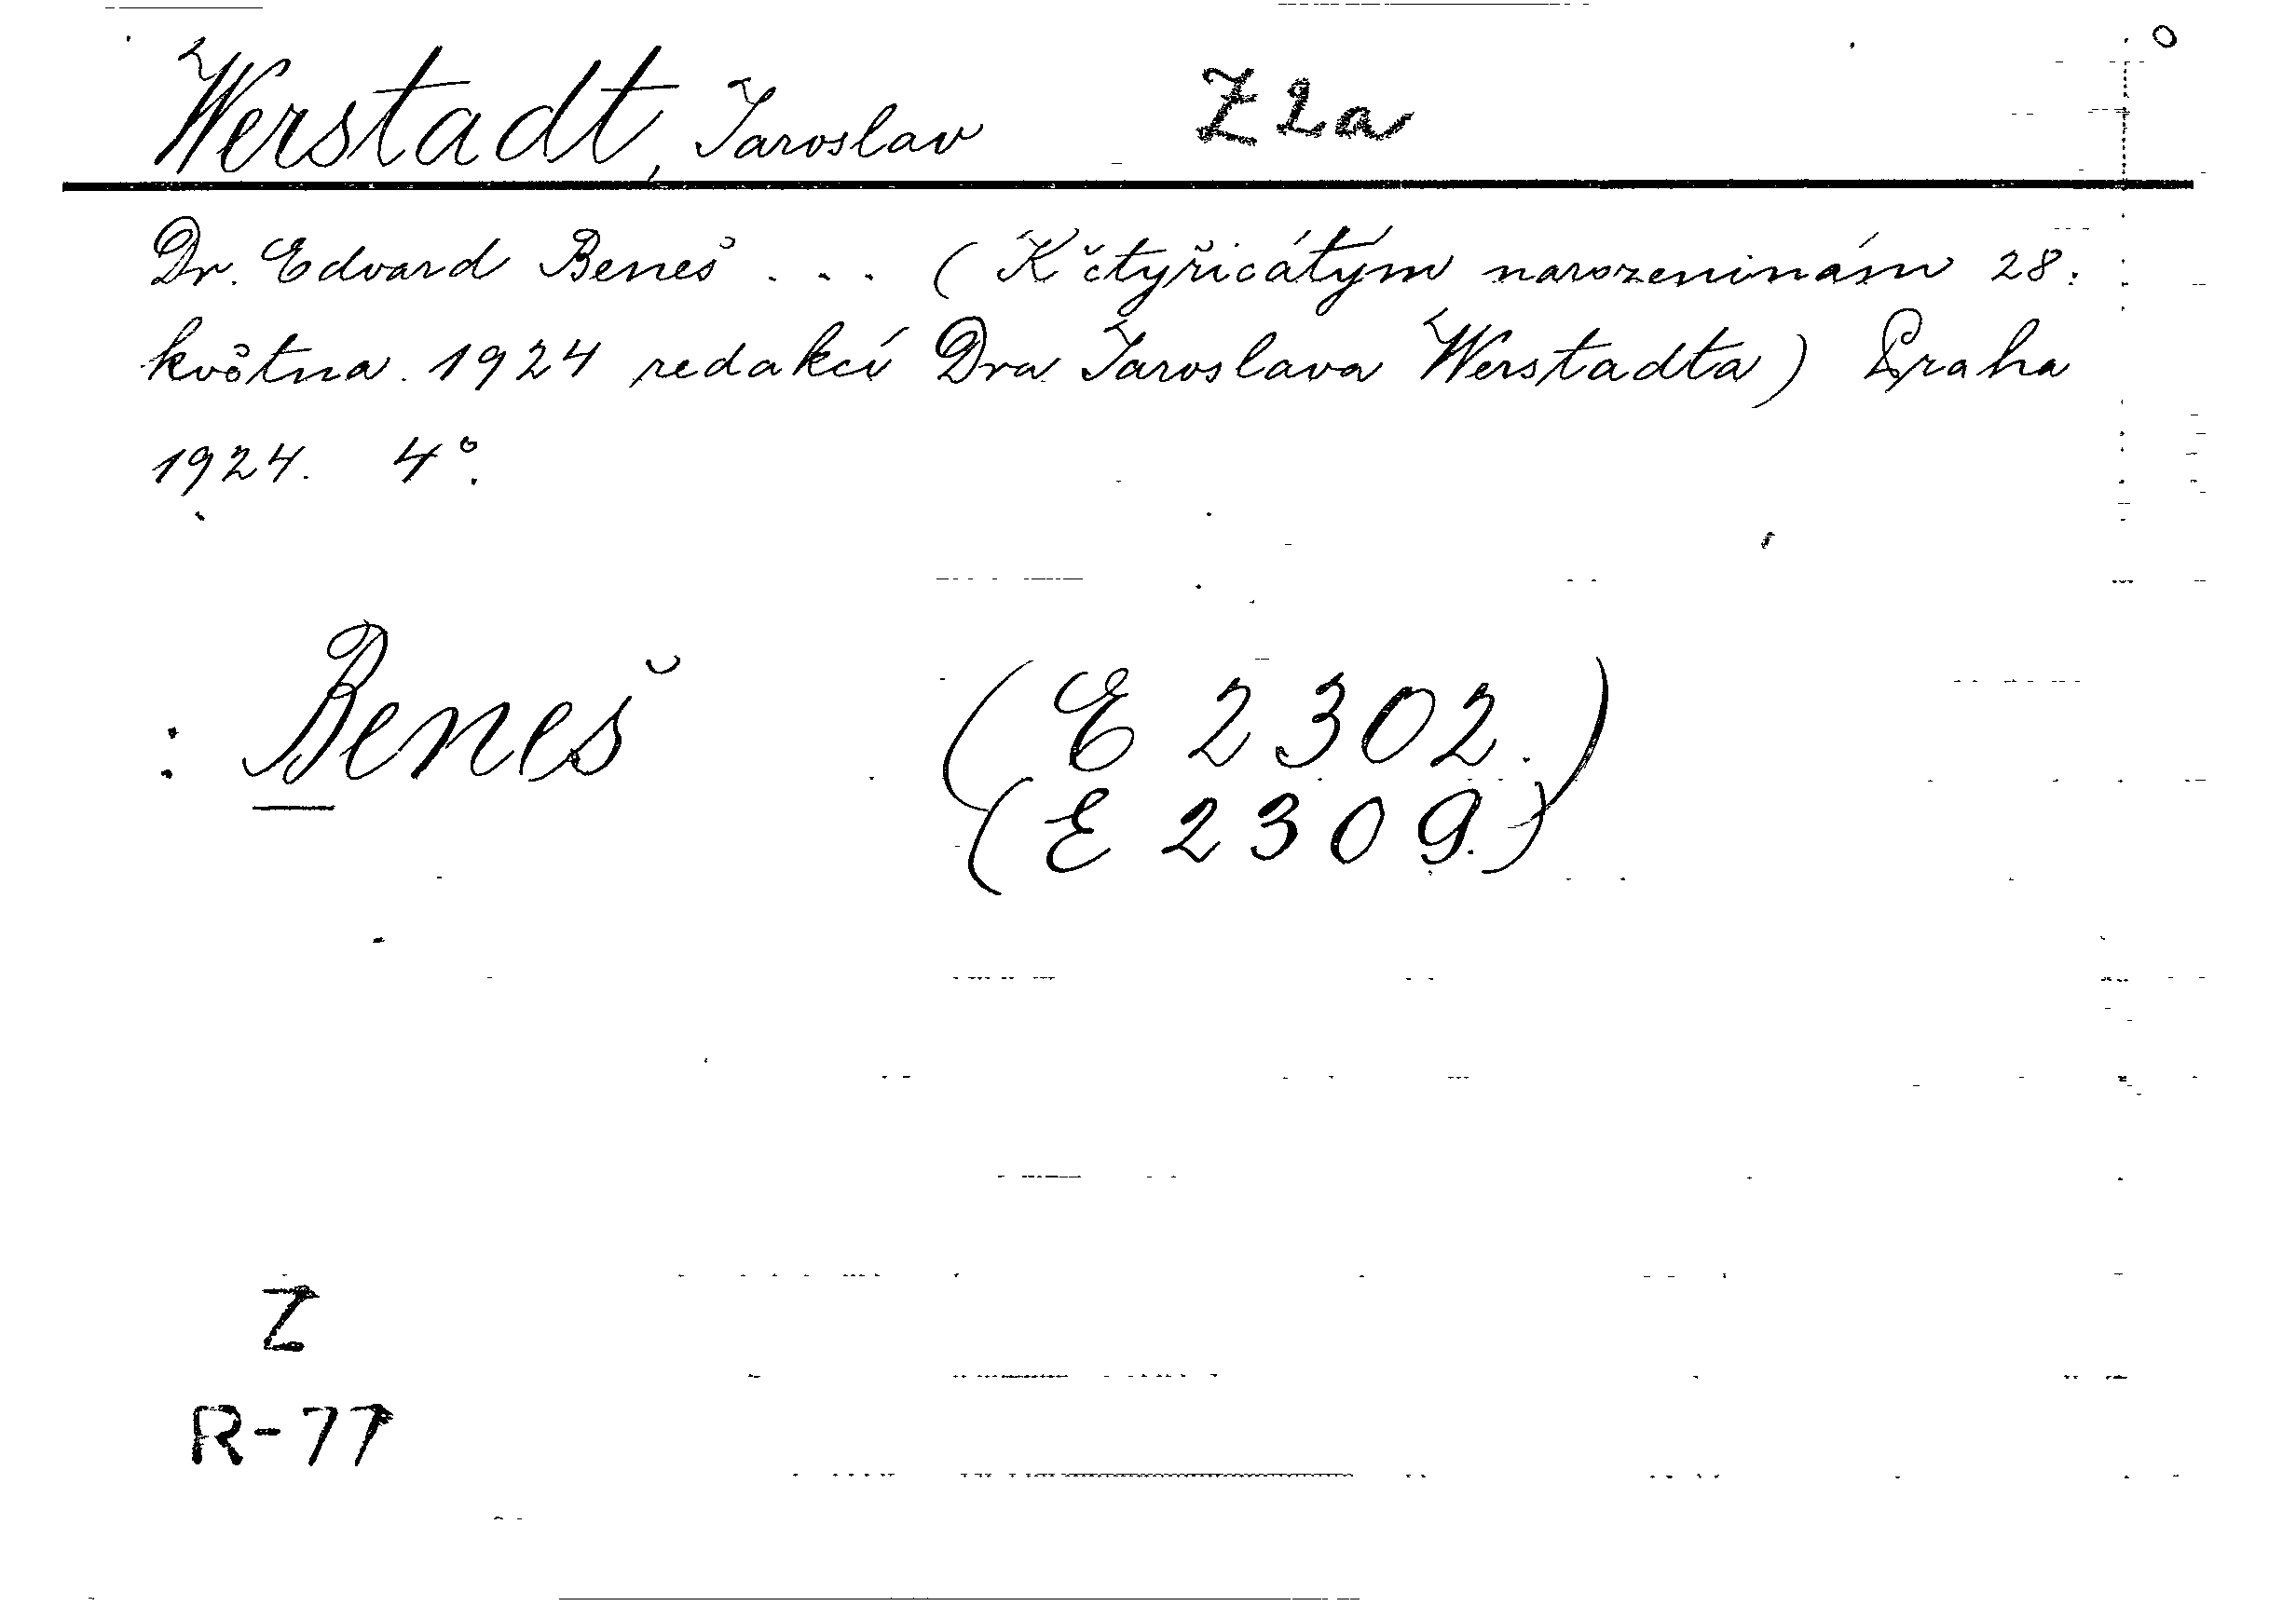 Werstadt, Jaroslav Z2a
Dr. Edvard Beneš . . . (K čtyřicátým narozeninám 28.
května 1924 redakcí Dra Jaroslava Werstadta) Praha
1924. 4°.
: Beneš (E 2302.)
(E 2309.)
Z
R-77